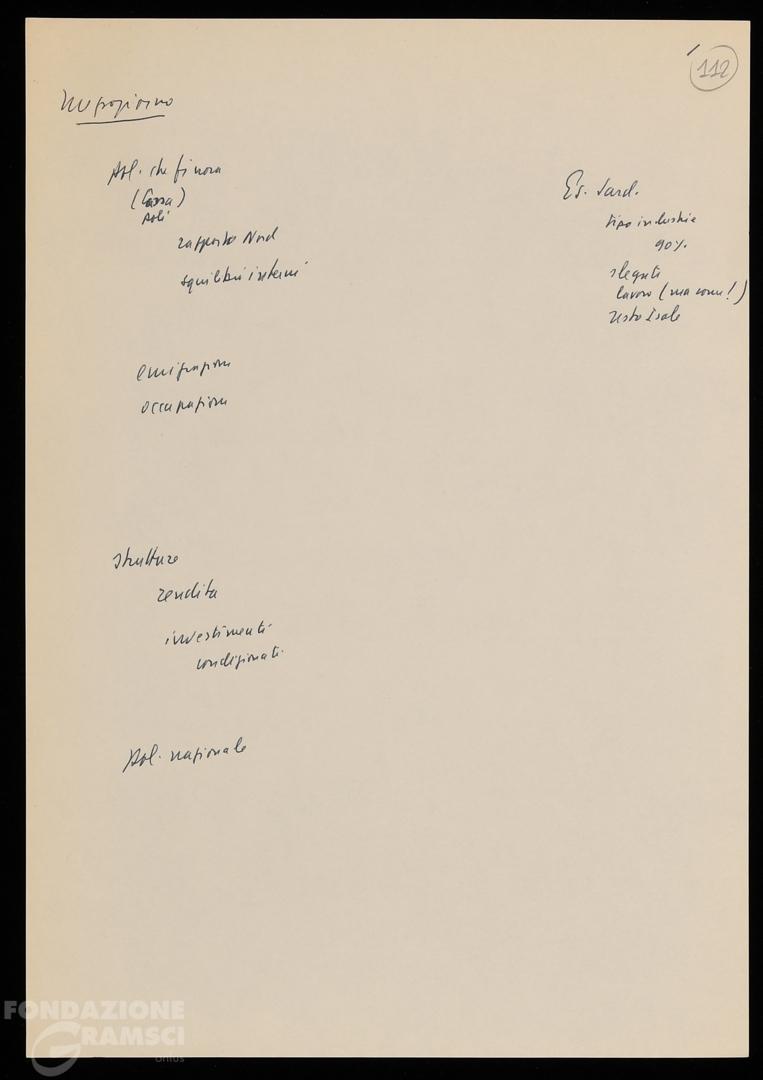 112
Mezzogiorno
Pol. che finora
(Cassa)
poli
rapporto Nord
squilibri interni
emigrazione
occupazione
strutture
rendita
investimenti
condizionati
Pol. nazionale
Es. Sard.
tipo industrie
90%
slegate
lavoro (ma come!)
resto Isole
FONDAZIONE
GRAMSCI
onlus